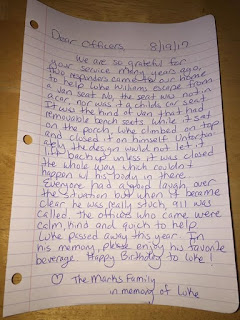 Dear Officers, 8/19/17
We are so grateful for
your service. Many years ago,
two responders came to our home
to help Luke Williams escape from
a van seat. No, the seat was not in
a car, nor was it a childs car seat.
It was the kind of van that had
removable bench seats. While it sat
on the porch, Luke climbed on top
and closed it on himself. Unfortun-
ately the design would not let it
lift back up unless it was closed
the whole way which couldn't
happen w/ his body in there.
Everyone had a good laugh over
the situation but when it became
clear he was really stuck, 911 was
called. The officers who came were
calm, kind and quick to help.
Luke passed away this year. In
his memory, please enjoy his favorite
beverage. Happy Birthday to Luke!
♡ The Marks Family
in memory of Luke